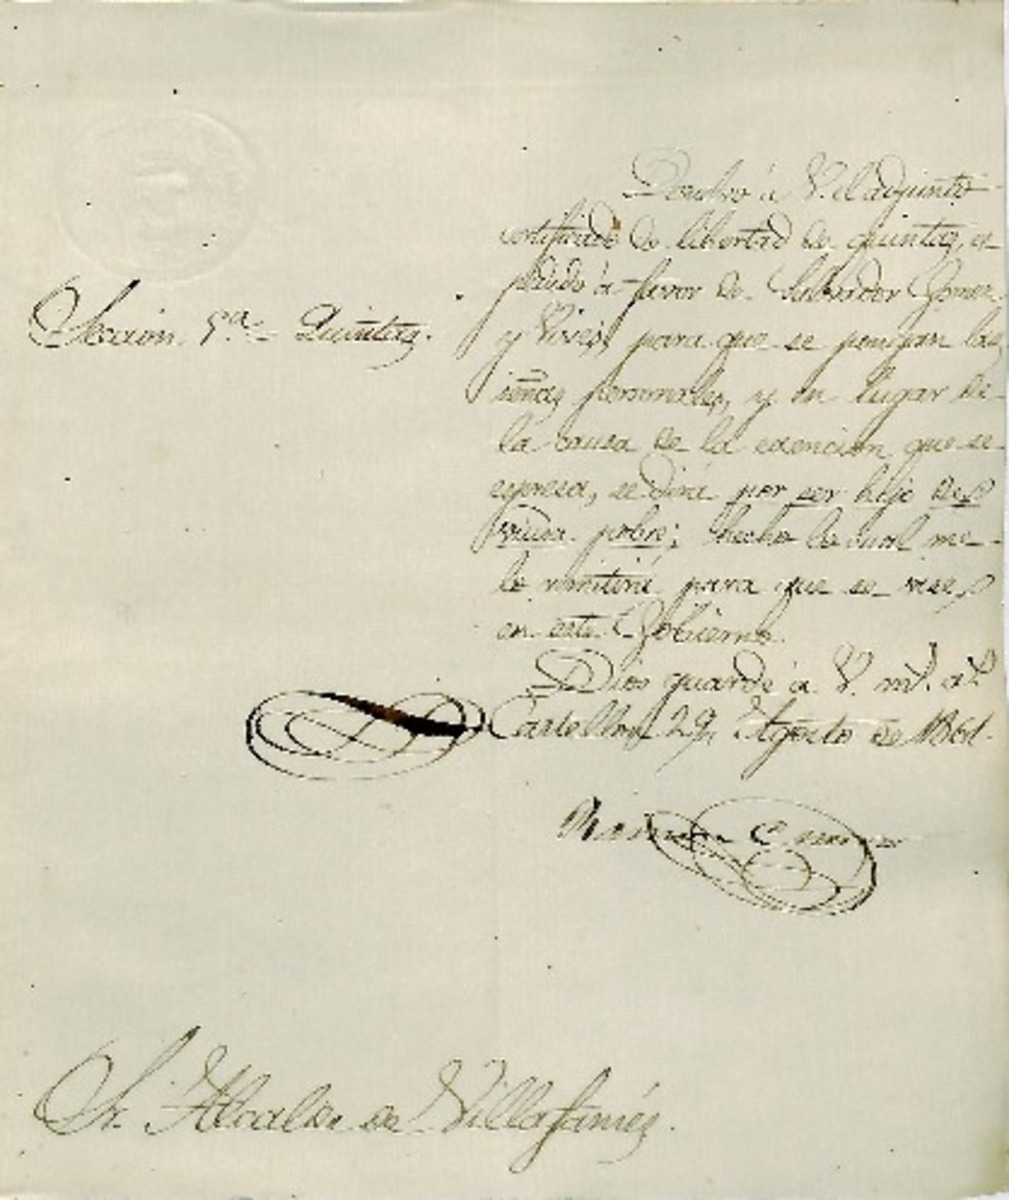 Devuelvo á V. el adjunto
certificado de libertad de quintas, es-
pedido á favor de Salvador Gomez
y Vives, para que se pongan las
señas personales, y en lugar de
la causa de la esencion que se
espresa, se dirá por ser hijo de
viuda pobre; hecho lo cual me
lo remitirá para que se vise
en este Gobierno.
Sección 5.ª Quintas.
Dios guarde á V. m.s a.s
Castellon 29 Agosto de 1861.
Ramon
Sr. Alcalde de Villafamés.